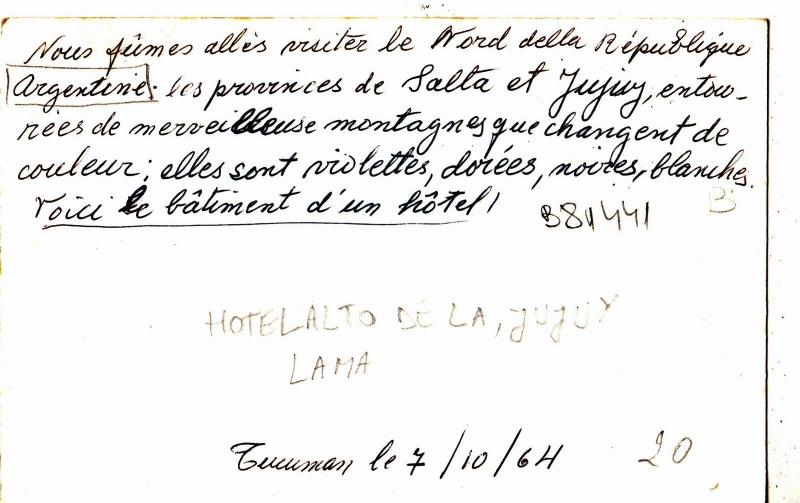 Nous fûmes allès visiter le Nord della République
Argentine. les provinces de Salta et Jujuy, entou-
rées de merveilleuse montagnes que changent de
couleur; elles sont violettes, dorées, noires, blanches.
Voici le bâtiment d'un hôtel!
B81441
B
HOTEL ALTO DE LA, JUJUY
LAMA
Tucuman le 7/10/64
20